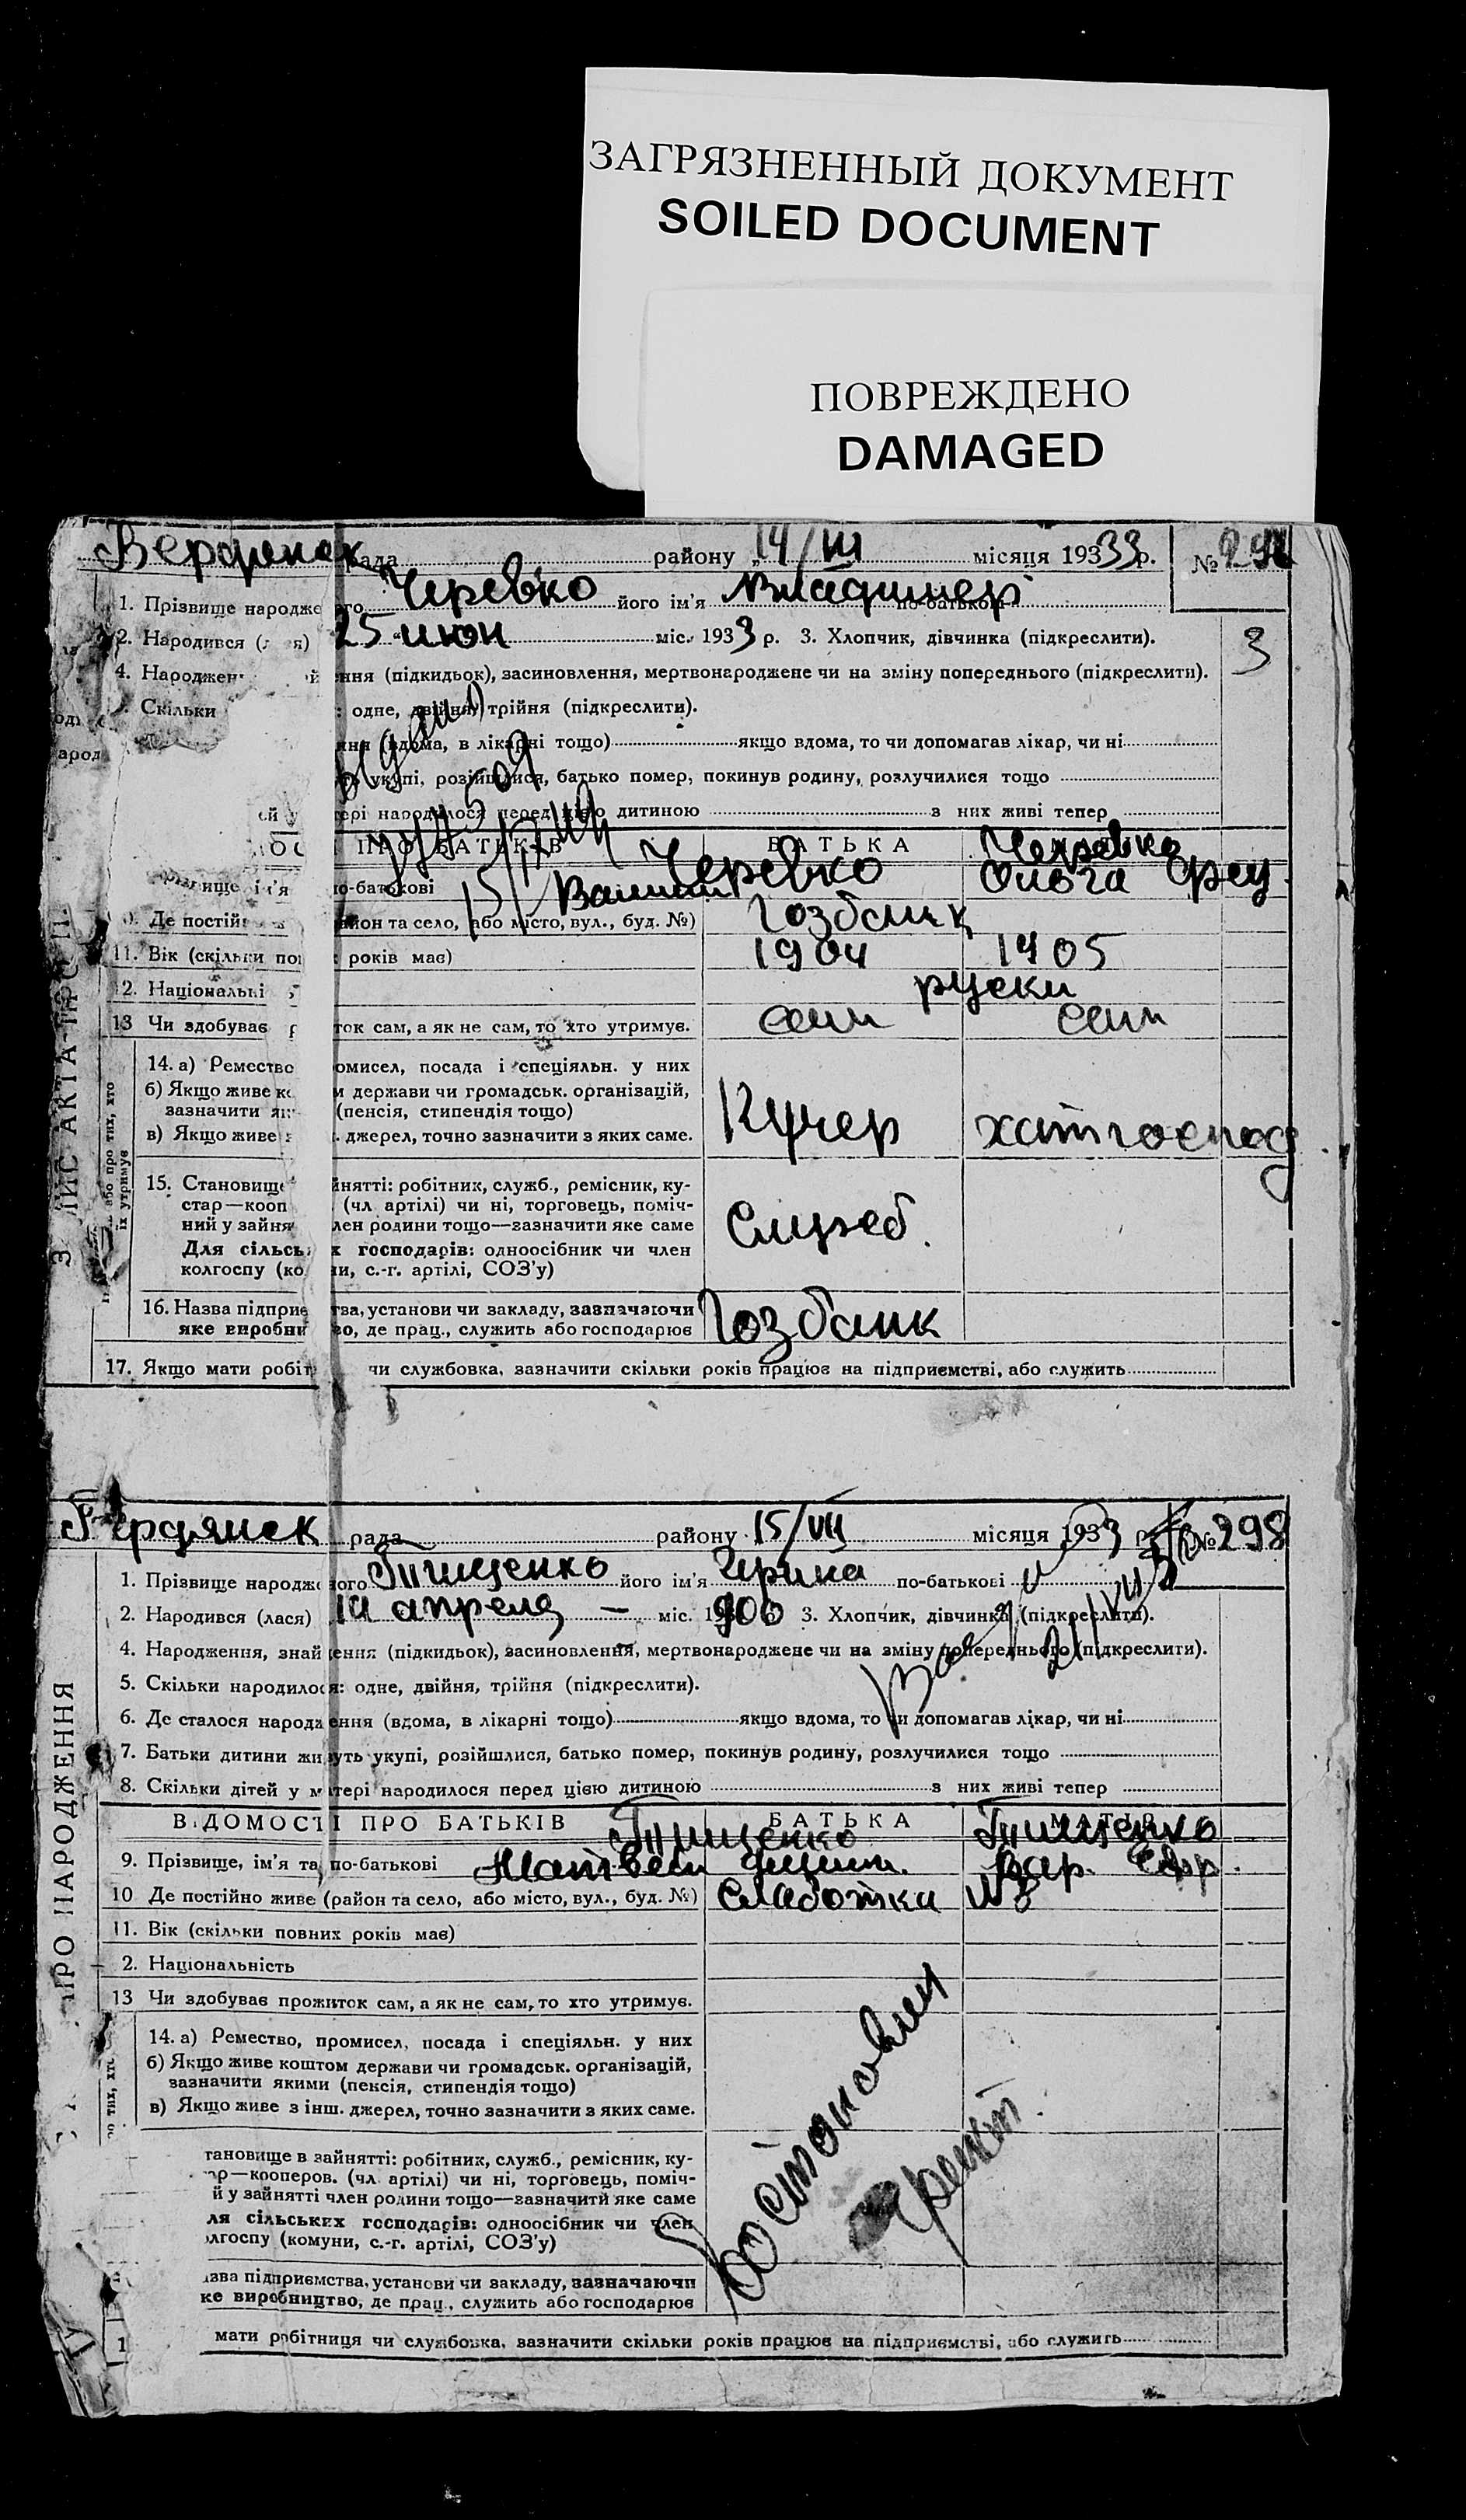 ЗАГРЯЗНЕННЫЙ ДОКУМЕНТ
SOILED DOCUMENT
ПОВРЕЖДЕНО
DAMAGED
Бердянск рада району „14/VII місяця 1933 р. №
1. Прізвище народже ого Черевко його ім'я Владимер по-батькові
2. Народився ( я) 25 июн міс. 1933 р. 3. Хлопчик, дівчинка (підкреслити).
3
4. Народжен ння (підкидьок), засиновлення, мертвонароджене чи на зміну попереднього (підкреслити).
Скільки : одне, двійня, трійня (підкреслити).
ння (вдома, в лікарні тощо) якщо вдома, то чи допомагав лікар, чи ні
укупі, розійшлися, батько помер, покинув родину, розлучилися тощо
ері народилося перед цією дитиною з них живі тепер
ПРО БАТЬКІВ БАТЬКА
Черевко
ім'я по-батькові Черевко Ольга
Де постій айон та село, або місто, вул., буд. №) Гозбанк
11. Вік (скільки по років має) 1904 1905
12. Національні руски
13 Чи здобував ток сам, а як не сам, то хто утримує. сам сам
14. а) Ремество омисел, посада і спеціяльн. у них
б) Якщо живе к м держави чи громадськ. організацій,
зазначити як (пенсія, стипендія тощо)
в) Якщо живе . джерел, точно зазначити з яких саме.
Кучер хатнгоспод
15. Становищ йнятті: робітник, служб., ремісник, ку-
стар—кооп (чл. артілі) чи ні, торговець, поміч-
ний у зайня лен родини тощо—зазначити яке саме
Служб.
Для сільсь х господарів: одноосібник чи член
колгоспу (ко и, с.-г. артілі, СОЗ'у)
16. Назва підприє тва, установи чи закладу, зазначаючи
яке виробни о, де прац., служить або господарює
Гозбанк
17. Якщо мати робіт чи службовка, зазначити скільки років працює на підприємстві, або служить
Бердянск рада району 15/VII місяця 1933 р. № 298
1. Прізвище народж ого Тищенко його ім'я Ирина по-батькові
2. Народився (лася) 14 апреля — міс. 1906 3. Хлопчик, дівчинка (підкреслити).
4. Народження, знайдення (підкидьок), засиновлення, мертвонароджене чи на зміну попереднього (підкреслити).
5. Скільки народилося: одне, двійня, трійня (підкреслити).
6. Де сталося народження (вдома, в лікарні тощо) якщо вдома, то чи допомагав лікар, чи ні
7. Батьки дитини живуть укупі, розійшлися, батько помер, покинув родину, розлучилися тощо
8. Скільки дітей у матері народилося перед цією дитиною з них живі тепер
ВІДОМОСТІ ПРО БАТЬКІВ БАТЬКА МАТІР
Тищенко Тищенко
9. Прізвище, ім'я та по-батькові Матвей Вар. Ефр.
10 Де постійно живе (район та село, або місто, вул., буд. №) Слаботка №8
11. Вік (скільки повних років має)
2. Національність
13 Чи здобував прожиток сам, а як не сам, то хто утримує.
14. а) Ремество, промисел, посада і спеціяльн. у них
б) Якщо живе коштом держави чи громадськ. організацій,
зазначити якими (пенсія, стипендія тощо)
в) Якщо живе з інш. джерел, точно зазначити з яких саме.
тановище в зайнятті: робітник, служб., ремісник, ку-
ар—кооперов. (чл. артілі) чи ні, торговець, поміч-
й у зайнятті член родини тощо—зазначити яке саме
ля сільських господарів: одноосібник чи член
олгоспу (комуни, с.-г. артілі, СОЗ'у)
азва підприємства, установи чи закладу, зазначаючи
ке виробництво, де прац., служить або господарює
1 мати робітниця чи службовка, зазначити скільки років працює на підприємстві, або служить
ПРО НАРОДЖЕННЯ